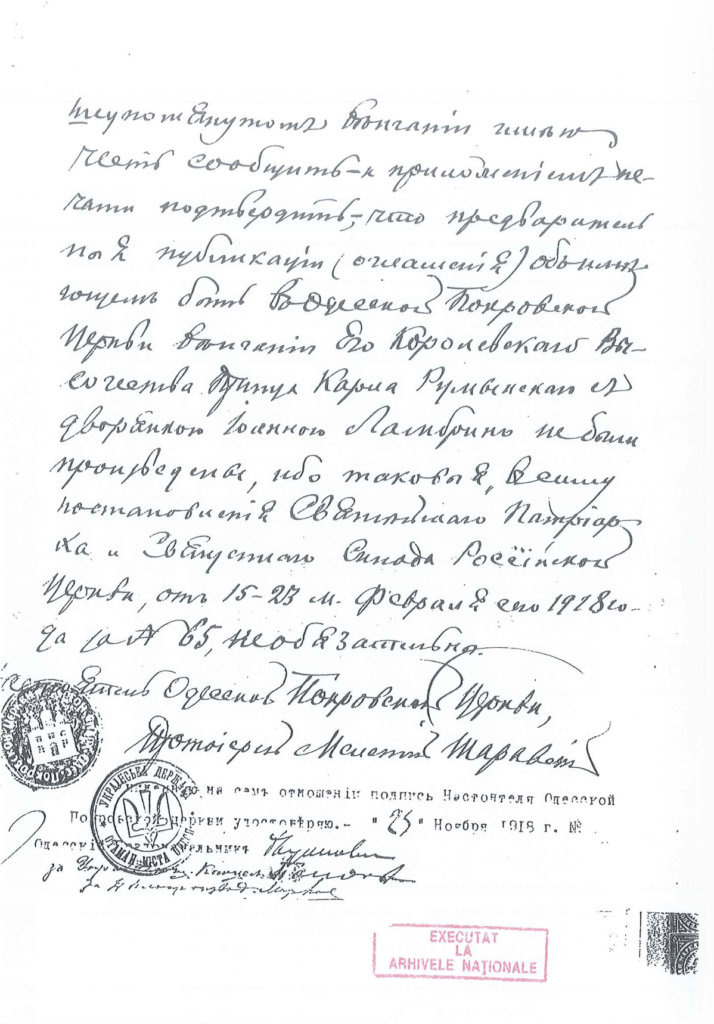 шеупомянутомъ вѣнчаніи имѣю
честь сообщить и приложеніемъ пе-
чати подтвердить, что предваритель
ныя публикаціи (оглашенія) о бывшѣ
въ Одесской Покровской
Церкви вѣнчаніи Его Королевскаго Вы-
сочества Принца Карла Румынскаго съ
дворянкою Іоанною Ламбрино не были
произведены, ибо таковыя, въ силу
постановленія Святѣйшаго Патріар-
ха и Священнаго Синода Россійской
Церкви, отъ 15-23 м. Февраля сего 1918 го-
да за № 65, необязательны.
Настоятель Одесской Покровской Церкви,
Протоіерей Мелетій Шаравскій
на семъ отношеніи подпись Настоятеля Одесской
Покровской церкви удостовѣряю.- "25" Ноября 1918 г. №
Одесскій
за
за
УКРАЇНСЬКА ДЕРЖАВА
ОТАМАН МІСТА ОДЕСИ
EXECUTAT
LA
ARHIVELE NAȚIONALE